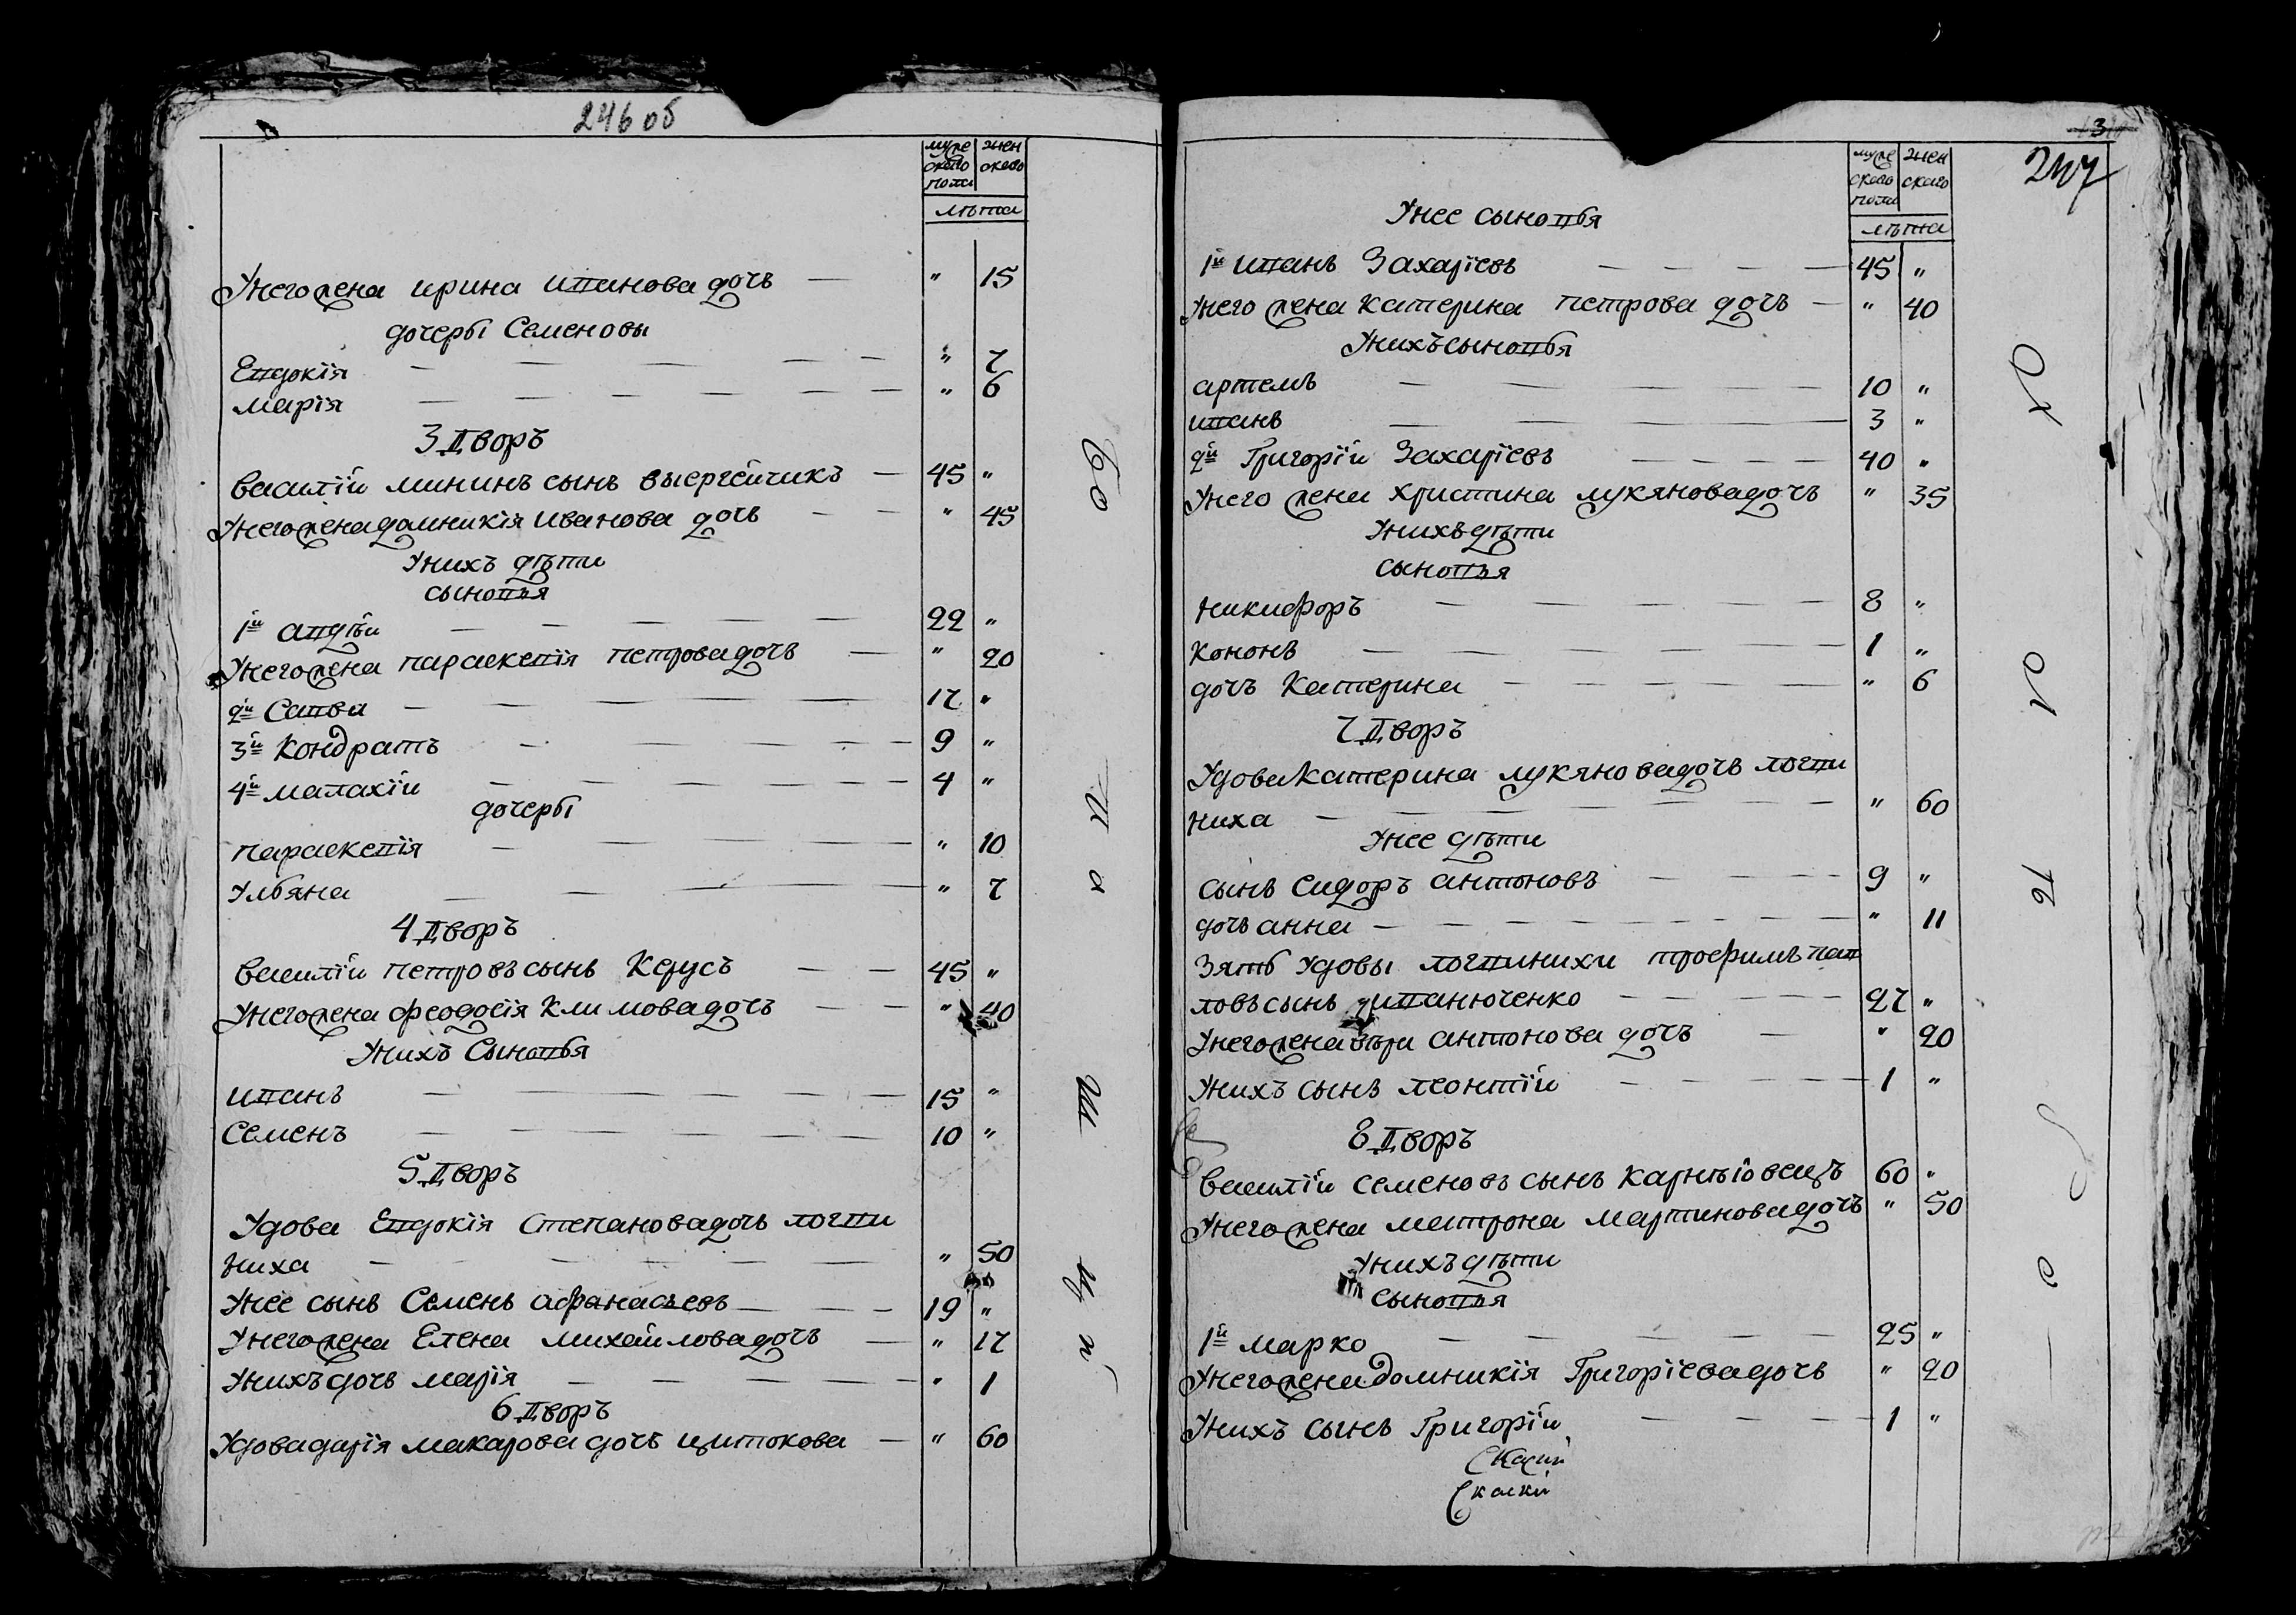 246 об
муже
ского
пола
жен
ского
лѣта
Унего жена ирина иванова дочь — " 15
дочеры Семеновы
Евдокія — " 7
марія — " 6
3 Дворъ
василій мининъ сынъ выергейчикъ — 45 "
Унего жена домникія иванова дочь — " 45
Унихъ дѣти
сыновья
1й авдѣй — 22 "
Унего жена параскевія петрова дочь — " 20
2й Савва — 17 "
3й Кондратъ — 9 "
4й малахій — 4 "
дочеры
параскевія — " 10
Ульяна — " 7
4 Дворъ
василій петровъ сынъ Керусъ — 45 "
Унего жена феодосія Климова дочь — " 40
Унихъ Сыновья
иванъ — 15 "
Семенъ — 10 "
5 Дворъ
Удова Евдокія Степанова дочь логви
ниха — " 50
Унее сынъ Семенъ афанасьевъ — 19 "
Унего жена Елена михайлова дочь — " 17
Унихъ дочь марія — " 1
6 Дворъ
Удова дарія макарова дочь щитокова — " 60
3
247
муже
ского
пола
жен
ского
лѣта
Унее сыновья
1й иванъ Захаріевъ — 45 "
Унего жена Катерина петрова дочь — " 40
Унихъ сыновья
артемъ — 10 "
иванъ — 3 "
2й Григорій Захаріевъ — 40 "
Унего жена христина лукянова дочь " 35
Унихъ дѣти
сыновья
никифоръ — 8 "
Кононъ — 1 "
дочь Катерина — " 6
7 Дворъ
Удова Катерина лукянова дочь логви
ниха — " 60
Унее дѣти
сынъ сидоръ антоновъ — 9 "
дочь анна — " 11
Зять удовы логвинихи трофимъ пав
ловъ сынъ иванюченко — 27 "
Унего жена антонова дочь — " 20
Унихъ сынъ леонтій — 1 "
8 Дворъ
василій семеновъ сынъ карнѣіовецъ 60 "
Унего жена матрона мартинова дочь " 50
Унихъ дѣти
сыновья
1й марко — 25 "
Унего жена домникія Григоріева дочь " 20
Унихъ сынъ Григорій — 1 "